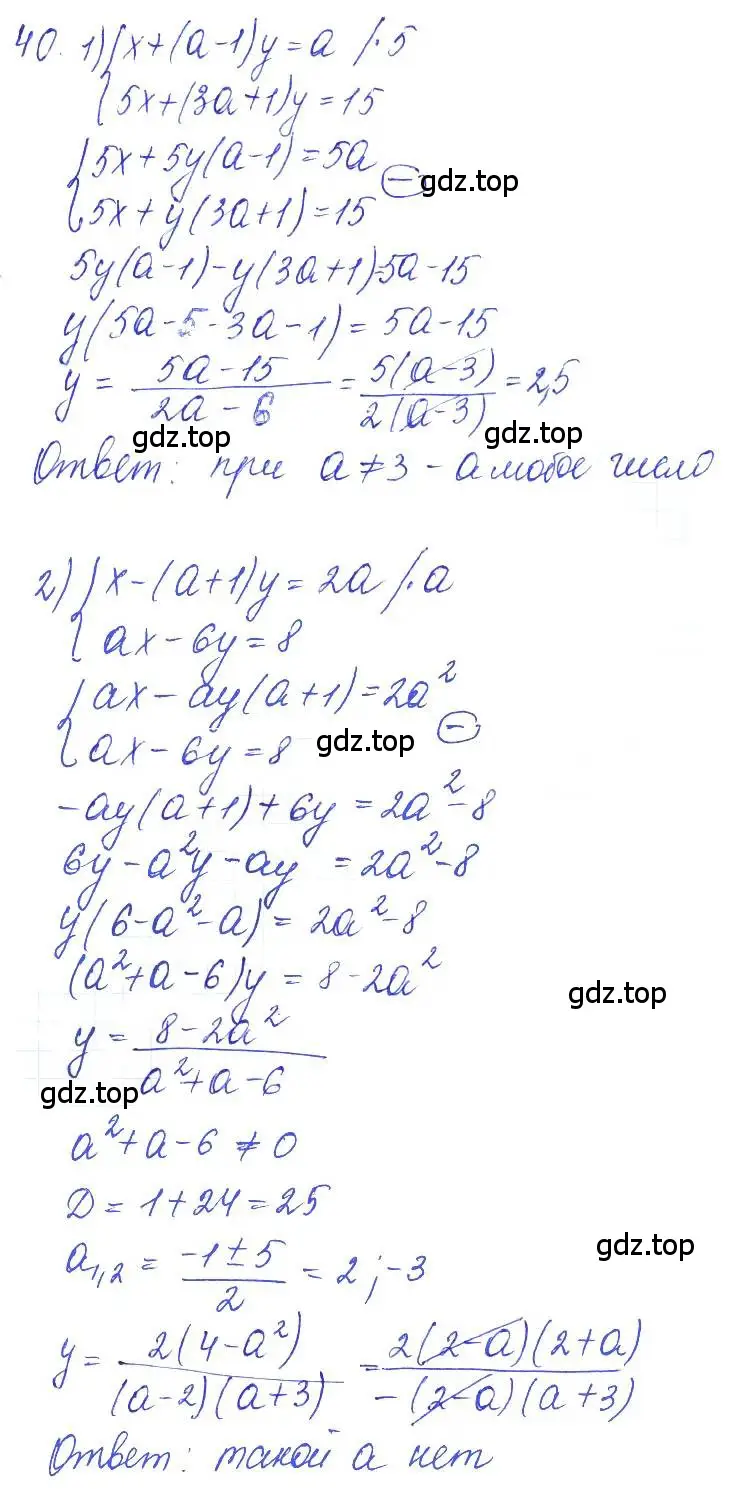 40. 1) { x+(a-1)y=a /·5
5x+(3a+1)y=15
{ 5x+5y(a-1)=5a
5x+y(3a+1)=15 (−) gdz.top
5y(a-1)-y(3a+1)=5a-15
y(5a-5-3a-1)=5a-15
y = (5a-15)/(2a-6) = 5(a-3)/2(a-3) = 2,5
gdz.top gdz.top
Ответ: при a≠3 - a любое число
2) { x-(a+1)y=2a /·a
ax-6y=8
{ ax-ay(a+1)=2a²
ax-6y=8 gdz.top (−)
-ay(a+1)+6y=2a²-8
6y-a²y-ay=2a²-8
y(6-a²-a)=2a²-8
(a²+a-6)y=8-2a²
gdz.top
y = (8-2a²)/(a²+a-6)
gdz.top
a²+a-6≠0
D=1+24=25
a₁,₂ = (-1±5)/2 = 2; -3
gdz.top
y = 2(4-a²)/(a-2)(a+3) = 2(2-a)(2+a)/-(2-a)(a+3)
Ответ: такой a нет